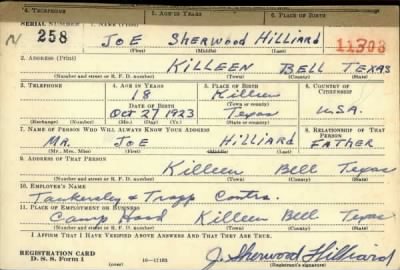 4. Telephone 5. Age in Years 6. Place of Birth
Serial Number 1. Name (Print)
N 258 Joe Sherwood Hilliard 11308
(First) (Middle) (Last)
2. Address (Print)
Killeen Bell Texas
(Number and street or R. F. D. number) (Town) (County) (State)
3. Telephone 4. Age in Years 5. Place of Birth 6. Country of Citizenship
18 Killeen
Date of Birth (Town or county)
Oct 27 1923 Texas U.S.A.
(Exchange) (Number) (Mo.) (Day) (Yr.) (State or country)
7. Name of Person Who Will Always Know Your Address 8. Relationship of That Person
Mr. Joe Hilliard Father
(Mr., Mrs., Miss) (First) (Middle) (Last)
9. Address of That Person
Killeen Bell Texas
(Number and street or R. F. D. number) (Town) (County) (State)
10. Employer's Name
Tankersley & Trapp Contrs.
11. Place of Employment or Business
Camp Hood Killeen Bell Texas
(Number and street or R. F. D. number) (Town) (County) (State)
I Affirm That I Have Verified Above Answers and That They Are True.
Registration Card
D. S. S. Form 1 16—17105 J. Sherwood Hilliard
(Registrant's signature)